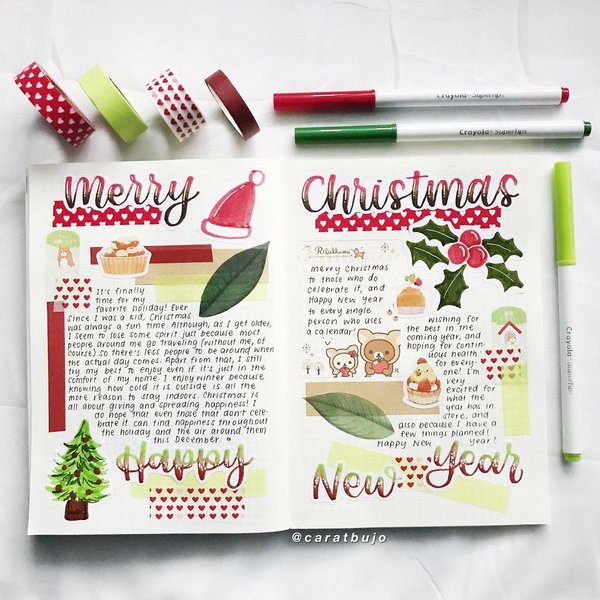 Crayola Supertips
Crayola Supertips
Crayola Supertips
Merry
It's finally
time for my
favorite holiday! Ever
since I was a kid, Christmas
was always a fun time. Although, as I get older,
I seem to lose some spirit just because most
people around me go traveling (without me, of
course) so there's less people to be around when
the actual day comes. Apart from that, I still
try my best to enjoy even if it's just in the
comfort of my home. I enjoy winter because
knowing how cold it is outside is all the
more reason to stay indoors. Christmas is
all about giving and spreading happiness! I
do hope that even those that don't cele-
brate it can find happiness throughout
the holiday and the air around them
this December.
Happy
Christmas
Rilakkuma
Merry Christmas
to those who do
celebrate it, and
Happy New Year
to every single
person who uses
a calendar!
Wishing for
the best in the
coming year, and
hoping for contin-
uous health
for every-
one! I'm
very
excited for
what the
year has in
store, and
also because I have a
few things planned!
Happy New Year!
New Year
@caratbujo